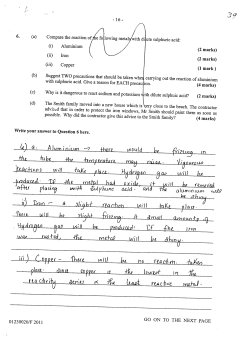 - 16 -
39
6. (a) Compare the reaction of the following metals with dilute sulphuric acid:
(i) Aluminium (2 marks)
(ii) Iron (2 marks)
(iii) Copper (1 mark)
(b) Suggest TWO precautions that should be taken when carrying out the reaction of aluminium
with sulphuric acid. Give a reason for EACH precaution. (4 marks)
(c) Why is it dangerous to react sodium and potassium with dilute sulphuric acid? (2 marks)
(d) The Smith family moved into a new house which is very close to the beach. The contractor
advised that in order to protect the iron windows, Mr Smith should paint them as soon as
possible. Why did the contractor give this advice to the Smith family? (4 marks)
Write your answer to Question 6 here.
6) a. Aluminium → there would be frizzing in
the tube the temperature may raise. Vigorous
reactions will take place. Hydrogen gas will be
produced. If the metal had oxide, it will be removed
after placing with sulphuric acid and the aluminium will
be shiny
ii) Iron - a slight reaction will take place.
There will be slight frizzing. A small amounts of
Hydrogen gas will be produced. If the iron
was rusted, the metal will be shiny.
iii) Copper - There will be no reaction taken
place since copper is the lowest in the
reactivity series ie the least reactive metal.
01230020/F 2011
GO ON TO THE NEXT PAGE